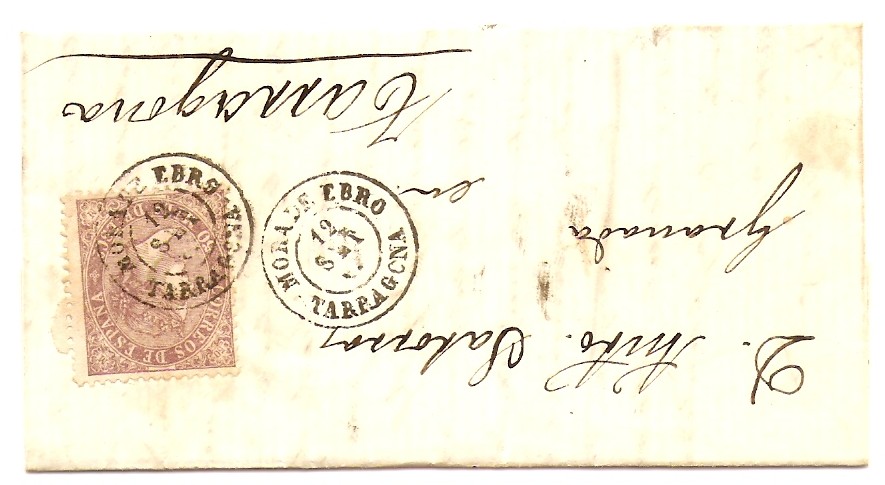 D. Anto.
Granada
en
Tarragona
MORA DE EBRO
12
TARRAGONA
MORA DE EBRO
12
TARRAGONA
CORREOS DE ESPAÑA